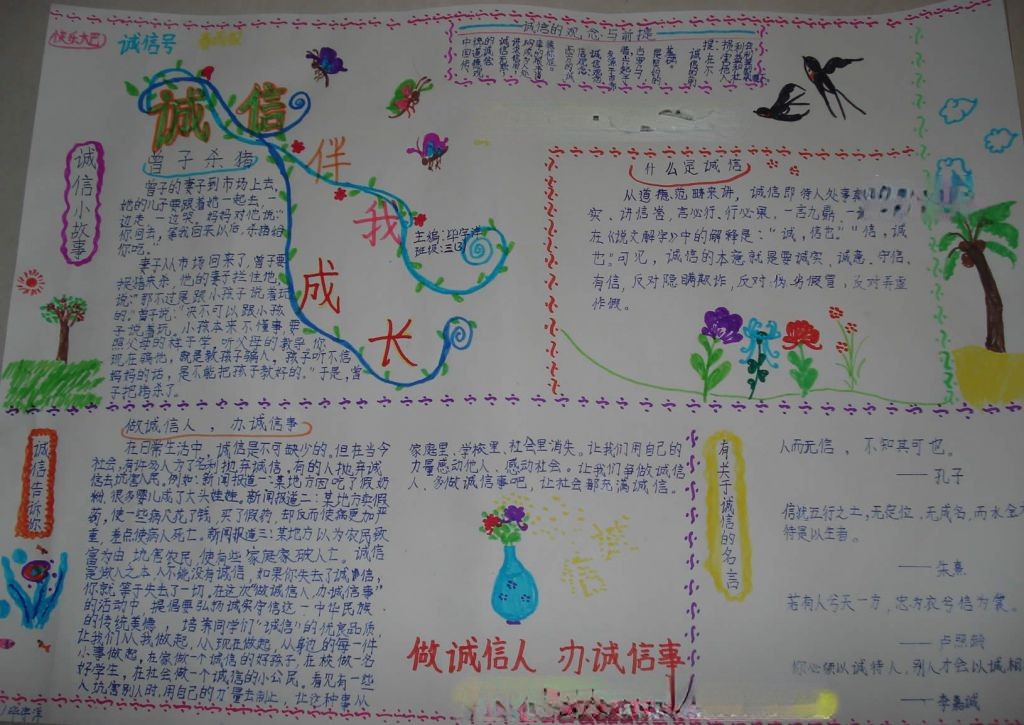 快乐大巴
诚信号
诚信的观念与前提
诚信
伴
我
成
长
诚信小故事
曾子杀猪
曾子的妻子到市场上去,
她的儿子要跟着她一起去,一
边走,一边哭。妈妈对他说:"
你回去,等我回来以后,杀猪给
你吃。
妻子从市场回来了,曾子要
捉猪来杀,他的妻子拦住他
说:"那不过是跟小孩子说着玩
的。"曾子说:"决不可以跟小孩
子说着玩。小孩本来不懂事,要
照父母的样子学,听父母的教导。你
现在骗他,就是教孩子骗人。孩子听不信
妈妈的话,是不能把孩子教好的。"于是,曾
子把猪杀了。
主编:
班级:三(3)
什么是诚信
从道德范畴来讲,诚信即待人处事
实、讲信誉,言必行、行必果,一言九鼎,一
在《说文解字》中的解释是:"诚,信也。""信,诚
也。"可见,诚信的本意就是要诚实、诚恳、守信、
有信,反对隐瞒欺诈,反对伪劣假冒,反对弄虚
作假。
诚信告诉你
做诚信人,办诚信事
在日常生活中,诚信是不可缺少的。但在当今
社会,有许多人为了名利抛弃诚信。有的人抛弃诚
信去坑害人民。例如:新闻报道一:某地方因吃了假奶
粉,很多婴儿成了大头娃娃。新闻报道二:某地方卖假
药,使一些病人花了钱,买了假药,却反而使病更加严
重,差点使病人死亡。新闻报道三:某地方以为农民致
富为由,坑害农民,使有些家庭家破人亡。诚信
是做人之本,人不能没有诚信,如果你失去了诚信,
你就等于失去了一切。在这次"做诚信人,办诚信事"
的活动中,提倡要弘扬诚实守信这一中华民族
的传统美德,培养同学们"诚信"的优良品质,
让我们从我做起,从现在做起,从身边的每一件
小事做起。在家做一个诚信的好孩子,在校做一名
好学生,在社会做一个诚信的小公民。看见有一些
人坑害别人时,用自己的力量去制止,让这种事从
家庭里、学校里、社会里消失。让我们用自己的
力量感动他人、感动社会。让我们争做诚信
人、多做诚信事吧,让社会都充满诚信。
做诚信人 办诚信事
有关于诚信的名言
人而无信,不知其可也。
——孔子
信犹五行之土,无定位,无成名,而水金
待是以生者。
——朱熹
若有人兮天一方,忠为衣兮信为裳。
——卢照龄
你必须以诚待人,别人才会以诚相
——李嘉诚